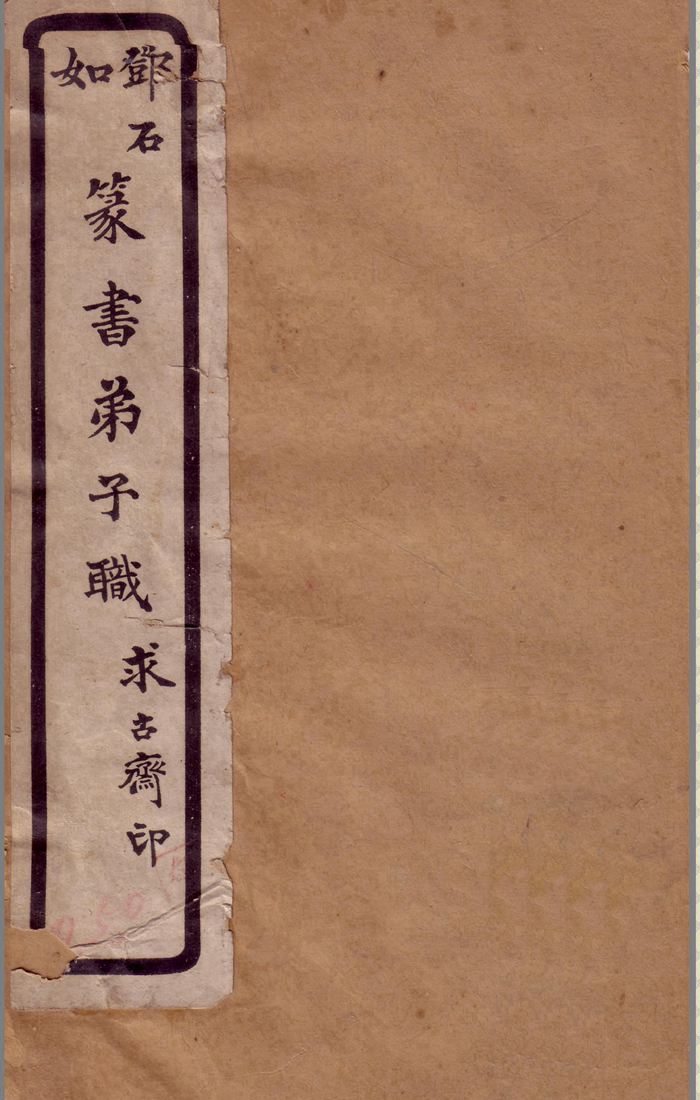 鄧石如
篆書弟子職
求古齋印